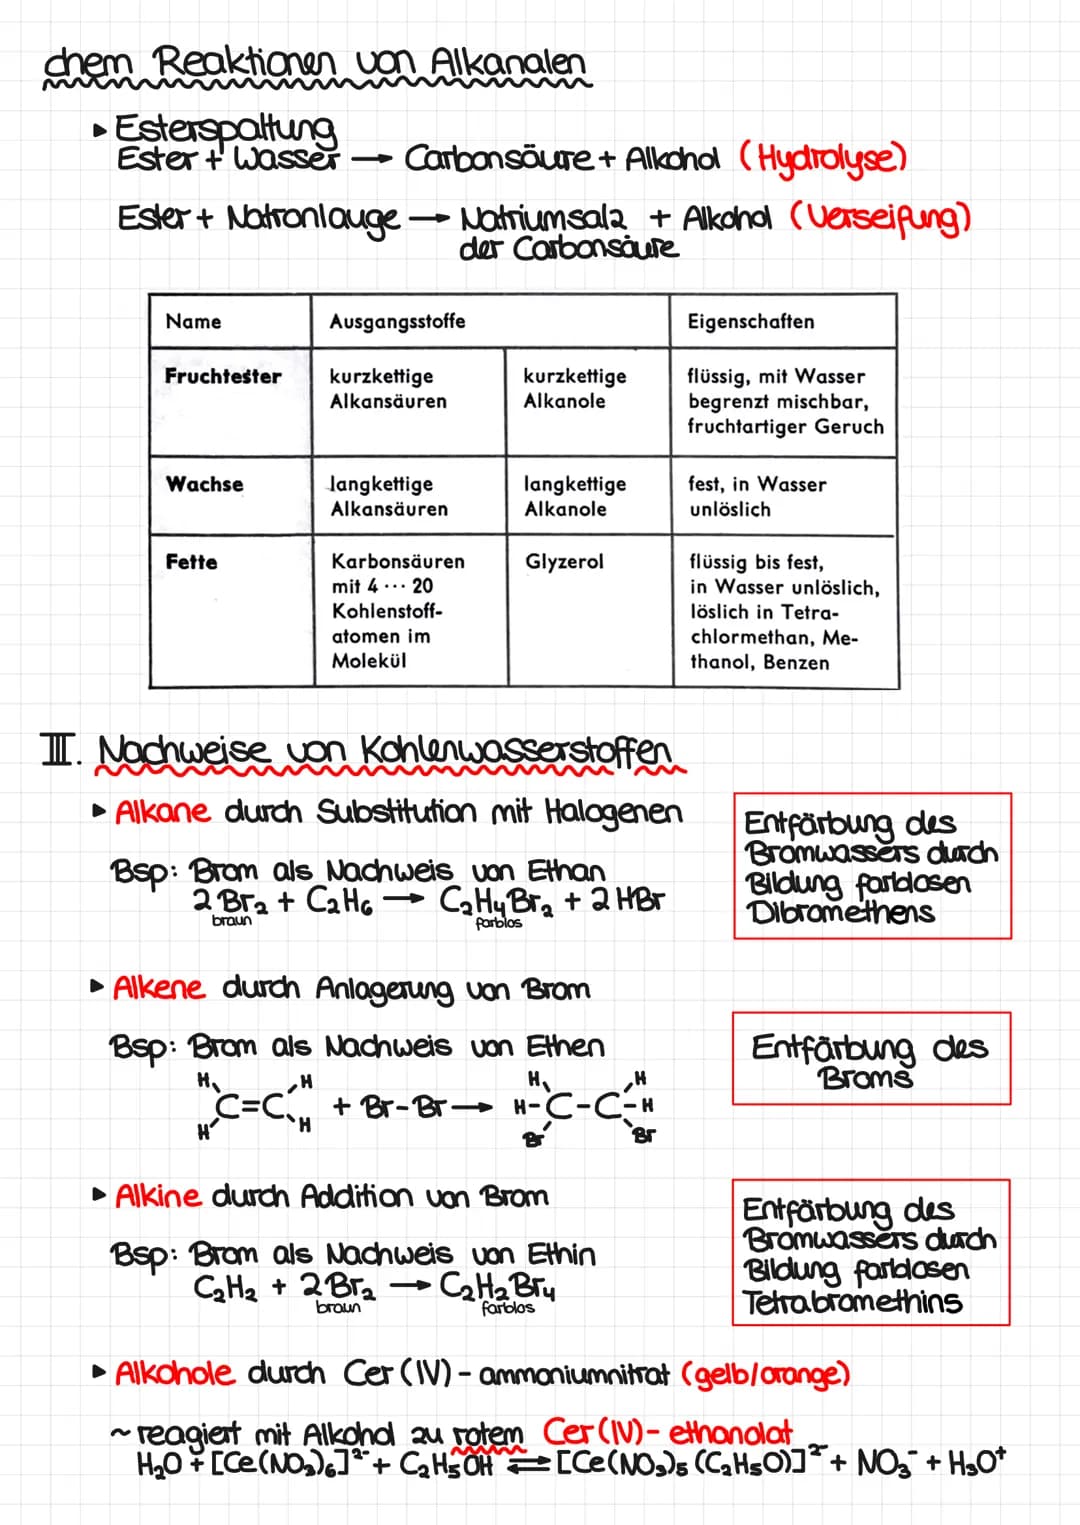 chem Reaktionen von Alkanalen
▸ Esterspaltung
Ester + Wasser → Carbonsäure + Alkohol (Hydrolyse)
Ester + Natronlauge → Natriumsalz + Alkohol (Verseifung)
der Carbonsäure
Name Ausgangsstoffe Eigenschaften
Fruchtester kurzkettige kurzkettige flüssig, mit Wasser
Alkansäuren Alkanole begrenzt mischbar,
fruchtartiger Geruch
Wachse langkettige langkettige fest, in Wasser
Alkansäuren Alkanole unlöslich
Fette Karbonsäuren Glyzerol flüssig bis fest,
mit 4 ··· 20 in Wasser unlöslich,
Kohlenstoff- löslich in Tetra-
atomen im chlormethan, Me-
Molekül thanol, Benzen
III. Nachweise von Kohlenwasserstoffen
▸ Alkane durch Substitution mit Halogenen
Bsp: Brom als Nachweis von Ethan
2 Br₂ + C₂H₆ → C₂H₄Br₂ + 2 HBr
braun farblos
Entfärbung des
Bromwassers durch
Bildung farblosen
Dibromethens
▸ Alkene durch Anlagerung von Brom
Bsp: Brom als Nachweis von Ethen
H H H H
C=C + Br-Br → H-C-C-H
H H Br Br
Entfärbung des
Broms
▸ Alkine durch Addition von Brom
Bsp: Brom als Nachweis von Ethin
C₂H₂ + 2Br₂ → C₂H₂Br₄
braun farblos
Entfärbung des
Bromwassers durch
Bildung farblosen
Tetrabromethins
▸ Alkohole durch Cer (IV) - ammoniumnitrat (gelb/orange)
~ reagiert mit Alkohol zu rotem Cer (IV) - ethanolat
H₂O + [Ce(NO₃)₆]²⁻ + C₂H₅OH ⇌ [Ce(NO₃)₅(C₂H₅O)]²⁻ + NO₃⁻ + H₃O⁺